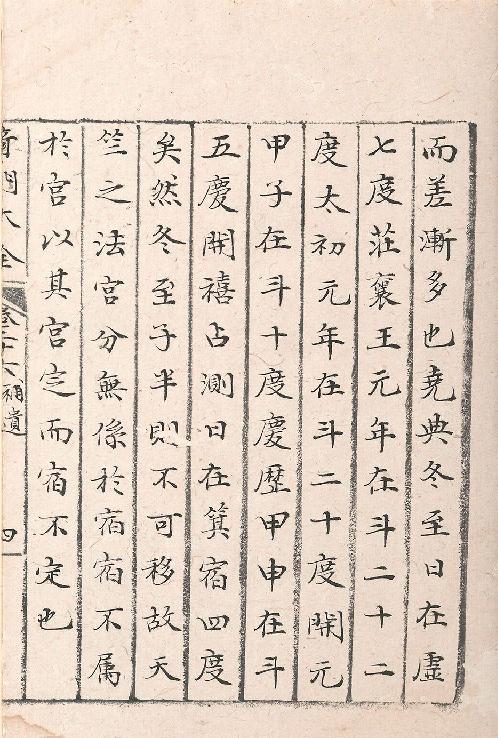 而差漸多也堯典冬至日在虛
七度莊襄王元年在斗二十二
度太初元年在斗二十度開元
甲子在斗十度慶歷甲申在斗
五慶開禧占測日在箕宿四度
矣然冬至子半則不可移故天
竺之法宮分無係於宿宿不属
於宮以其宮定而宿不定也
奇門大全
補遺
四